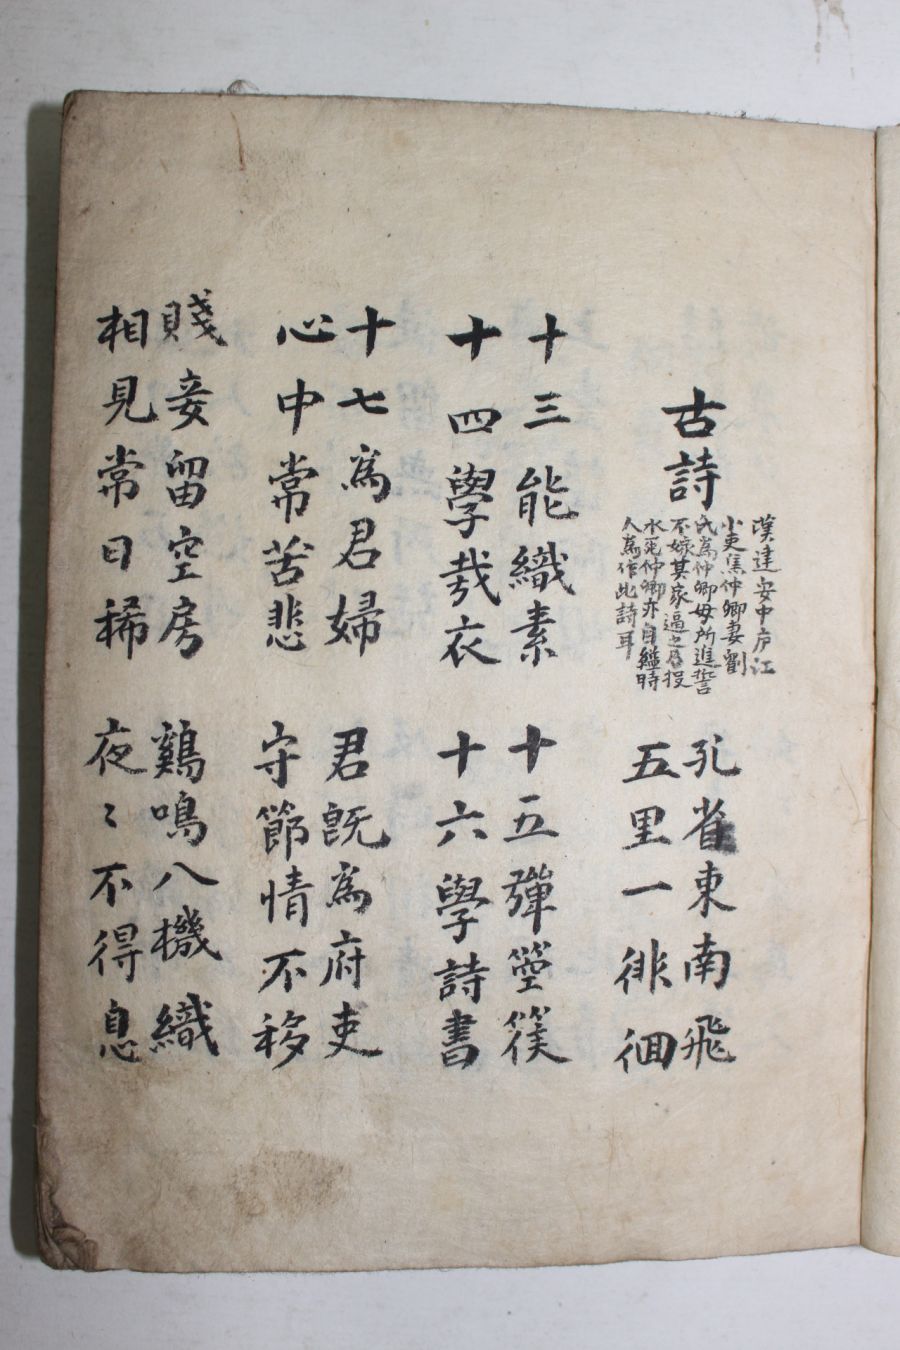 古詩
漢建安中庐江
小吏焦仲卿妻劉
氏爲仲卿母所進誓
不嫁其家逼之乃投
水死仲卿亦自縊時
人爲作此詩耳
孔雀東南飛
五里一徘徊
十三能織素
十四學裁衣
十五彈箜篌
十六學詩書
十七爲君婦
心中常苦悲
君既爲府吏
守節情不移
賤妾留空房
相見常日稀
鷄鳴入機織
夜〻不得息